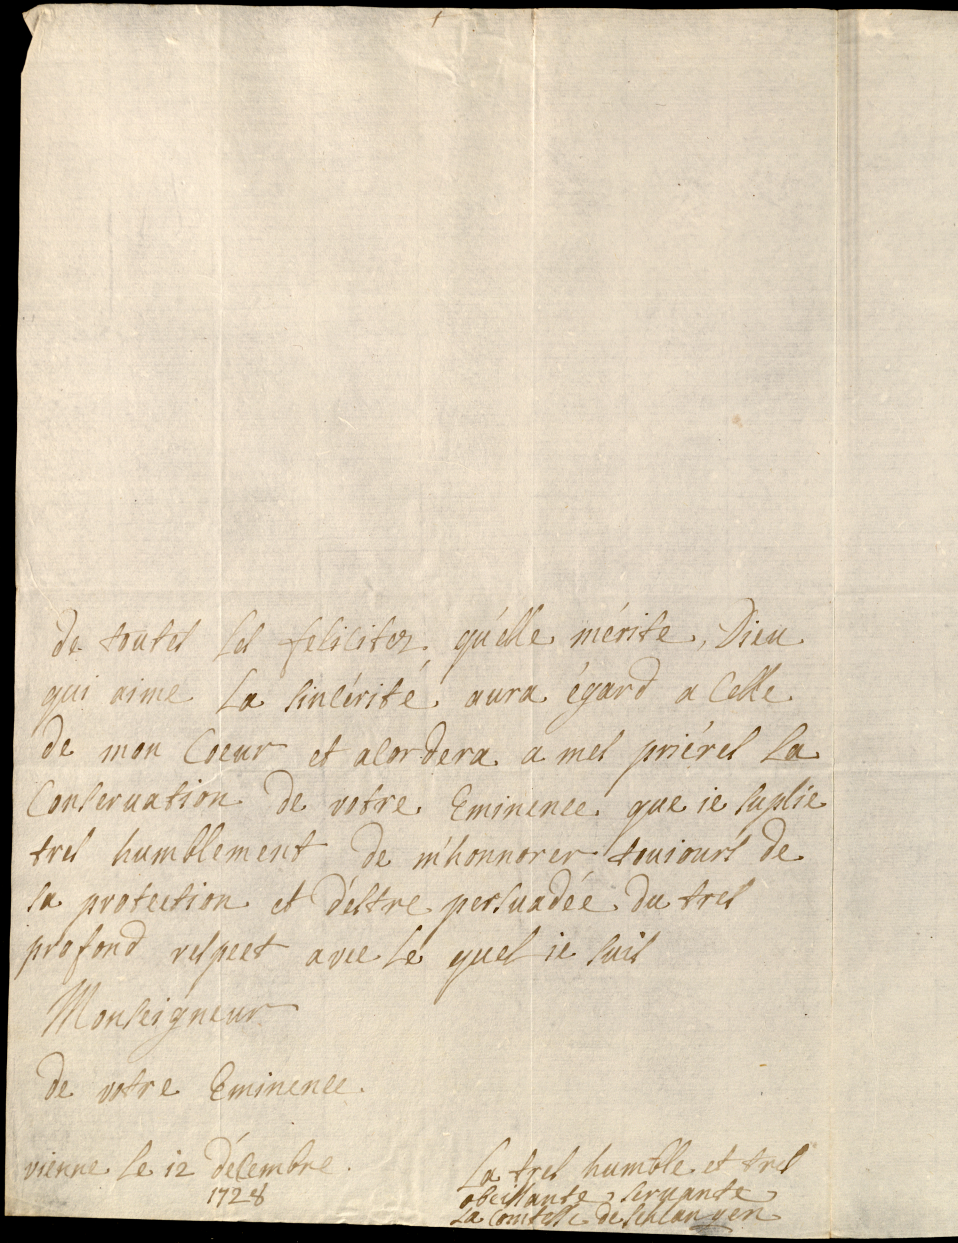 de toutes les felicitez qu'elle mérite, Dieu
qui aime La sincérité aura égard a Celle
de mon Coeur et acordera a mes priéres La
Conservation de votre Eminence que ie suplie
tres humblement de m'honnorer touiours de
sa protection et d'éstre persuadée du tres
profond respect avec Le quel ie suis
Monseigneur
de votre Eminence.
vienne Le 12 décembre.
1728
La tres humble et tres
obeissante servante
La Comtesse de